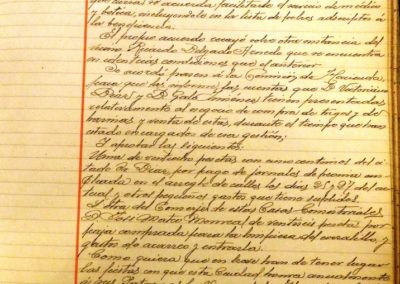 que antes se acuerda facilitarle el servicio de médico
y botica, incluyéndolo en la lista de pobres adscriptos á
la beneficencia.
El propio acuerdo recayó sobre otra instancia del
mismo Ricardo Delgado Heredia que se encuentra
en idénticas condiciones que el anterior.
Se acordó pasasen á la Comisión de Hacienda
para que las informe, las cuentas que D. Victoriano
Díaz y D. Galo Jiménez tienen presentadas
relativamente al negocio de compra de trigos y de
harinas y venta de estas, durante el tiempo que han
estado encargados de esa gestión;
Y aprobar las siguientes:
Una de veinticuatro pesetas con cinco céntimos del ci-
tado Sr. Díaz, por pago de jornales de peonía em-
pleada en el arreglo de calles los días 25 y 27 del ac-
tual y otros pequeños gastos que tiene suplidos.
Y otra del Conserje de estas Casas Consistoriales
D. José Mateo Monreal de veintiseis pesetas por
paja comprada para la limpieza del , y
gastos de acarreo y entrarla.
Como quiera que en base han de tener lugar
las fiestas con que esta Ciudad honra anualmente